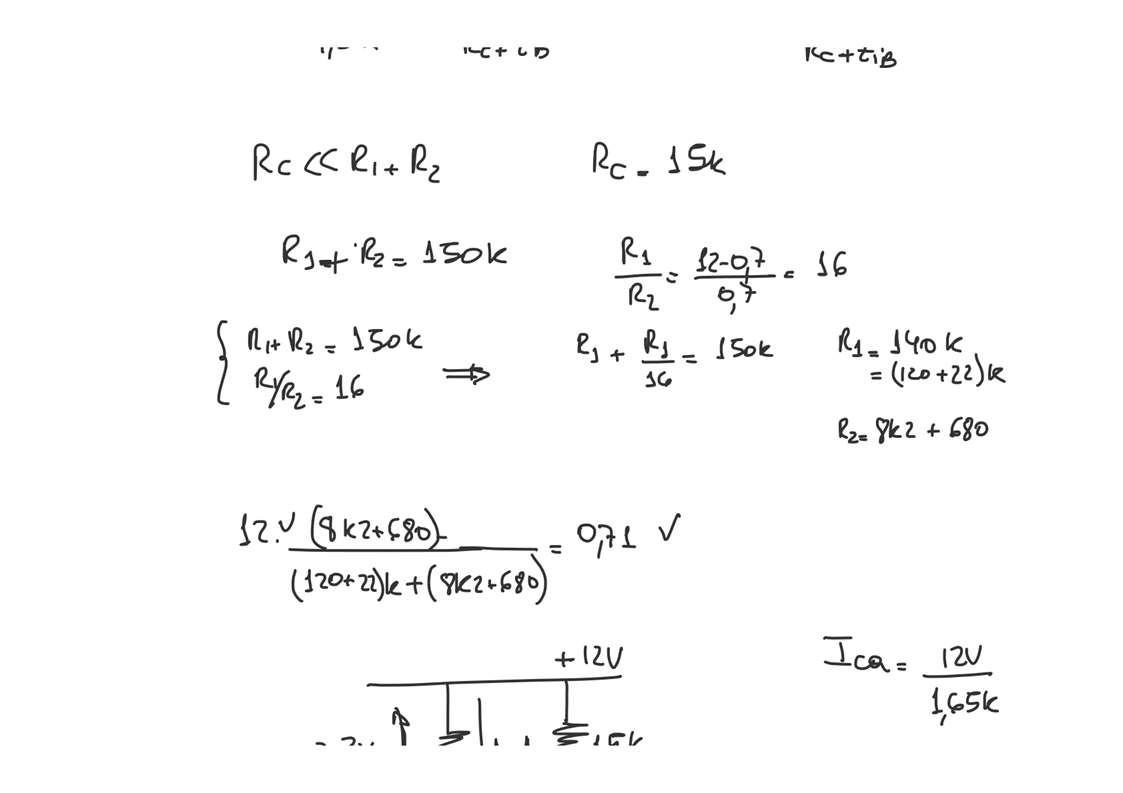 Rc << R1 + R2
Rc = 15k
R1 + R2 = 150k
R1/R2 = (12-0,7)/0,7 = 16
{ R1 + R2 = 150k
R1/R2 = 16
⇒
R1 + R1/16 = 150k
R1 = 140k
= (120+22)k
R2 = 8k2 + 680
12V (8k2+680) / ((120+22)k + (8k2+680)) = 0,71 ✓
+12V
ICQ = 12V/1,65k
15k